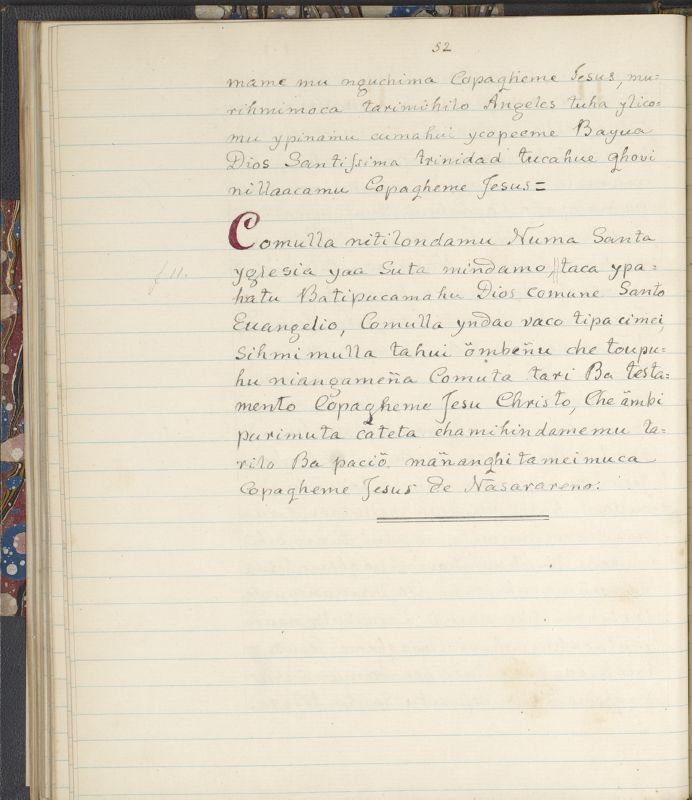 52
mame mu nguchima Copagheme Jesus, mu=
rihmimoca tarimihilo Angeles tuha ylico=
mu ypinamu cumahui ycopeeme Bayua
Dios Santissima trinidad tucahue ghovi
nillaacamu Copagheme Jesus=
Comulla nitilondamu Numa Santa
yglesia yaa Suta mindamo, || taca ypa=
f 11.
hatu Batipucamahu Dios comune Santo
Euangelio, Comulla yndao vaco tipa cimei,
sihmimulla tahui ömbeñu che toupu=
hu niangameña Comuta tari Ba testa=
mento Copagheme Jesu Christo, Che ämbi
purimuta cateta chamihindamemu ta=
rilo Ba paciõ. mañanghitameimuca
Copagheme Jesus de Nasarareno.